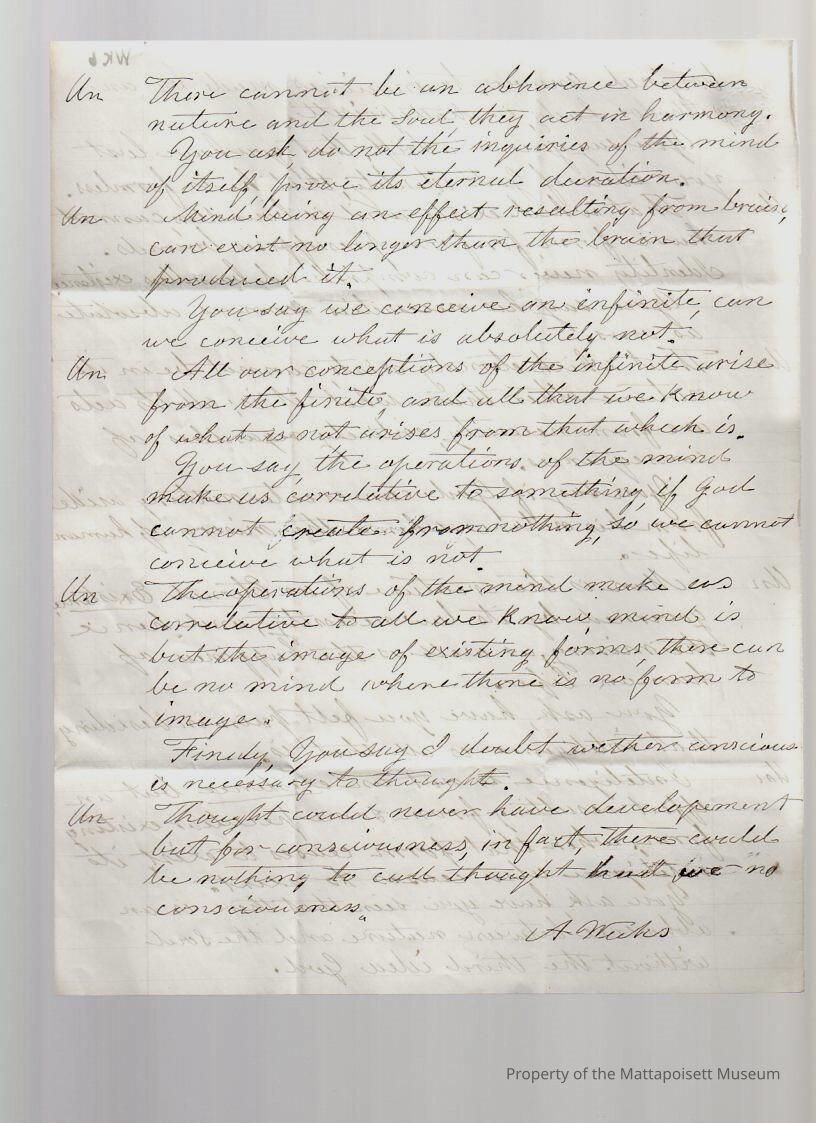 WK6
An There cannot be an abhorence between
nature and the Soul, they act in harmony.
You ask do not the inquiries of the mind
of itself, prove its eternal duration.
An Mind being an effect resulting from brain,
can exist no longer than the brain that
produced it.
You say we conceive an infinite, can
we conceive what is absolutely not.
An All our conceptions of the infinite arise
from the finite, and all that we know
of what is not arises from that which is.
You say, the operations of the mind
make us correlative to something, if God
cannot create from nothing, so we cannot
conceive what is not.
An The operations of the mind make us
correlative to all we know, mind is
but the image of existing forms, there can
be no mind where there is no form to
image.
Finely, You say I doubt wether conscious
is necessary to thought.
An Thought could never have developement
but for consciousness, in fact, there could
be nothing to call thought had we no
consciousness.
A Weeks
Property of the Mattapoisett Museum